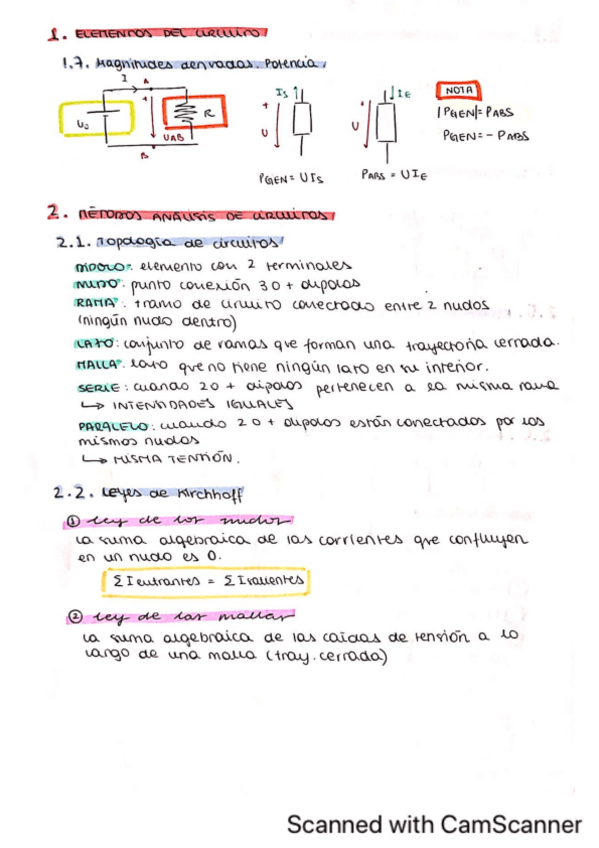 1. ELEMENTOS DEL CIRCUITO
1.7. Magnitudes derivadas. Potencia.
I A
U₀ + UAB R
B
Is + U
PGEN = UIs
IE + U
PABS = UIE
NOTA
|PGEN|= PABS
PGEN= - PABS
2. MÉTODOS ANÁLISIS DE CIRCUITOS
2.1. Topología de circuitos
DIPOLO: elemento con 2 terminales
NUDO: punto conexión 3 o + dipolos
RAMA: tramo de circuito conectado entre 2 nudos
(ningún nudo dentro)
LAZO: conjunto de ramas que forman una trayectoria cerrada.
MALLA: lazo que no tiene ningún lazo en su interior.
SERIE: cuando 2 o + dipolos pertenecen a la misma rama
↳ INTENSIDADES IGUALES
PARALELO: cuando 2 o + dipolos están conectados por los
mismos nudos
↳ MISMA TENTIÓN.
2.2. Leyes de Kirchhoff
① Ley de los nudos
La suma algebraica de las corrientes que confluyen
en un nudo es 0.
Σ I entrantes = Σ I salientes
② Ley de las mallas
La suma algebraica de las caídas de tensión a lo
largo de una malla (tray. cerrada)
Scanned with CamScanner